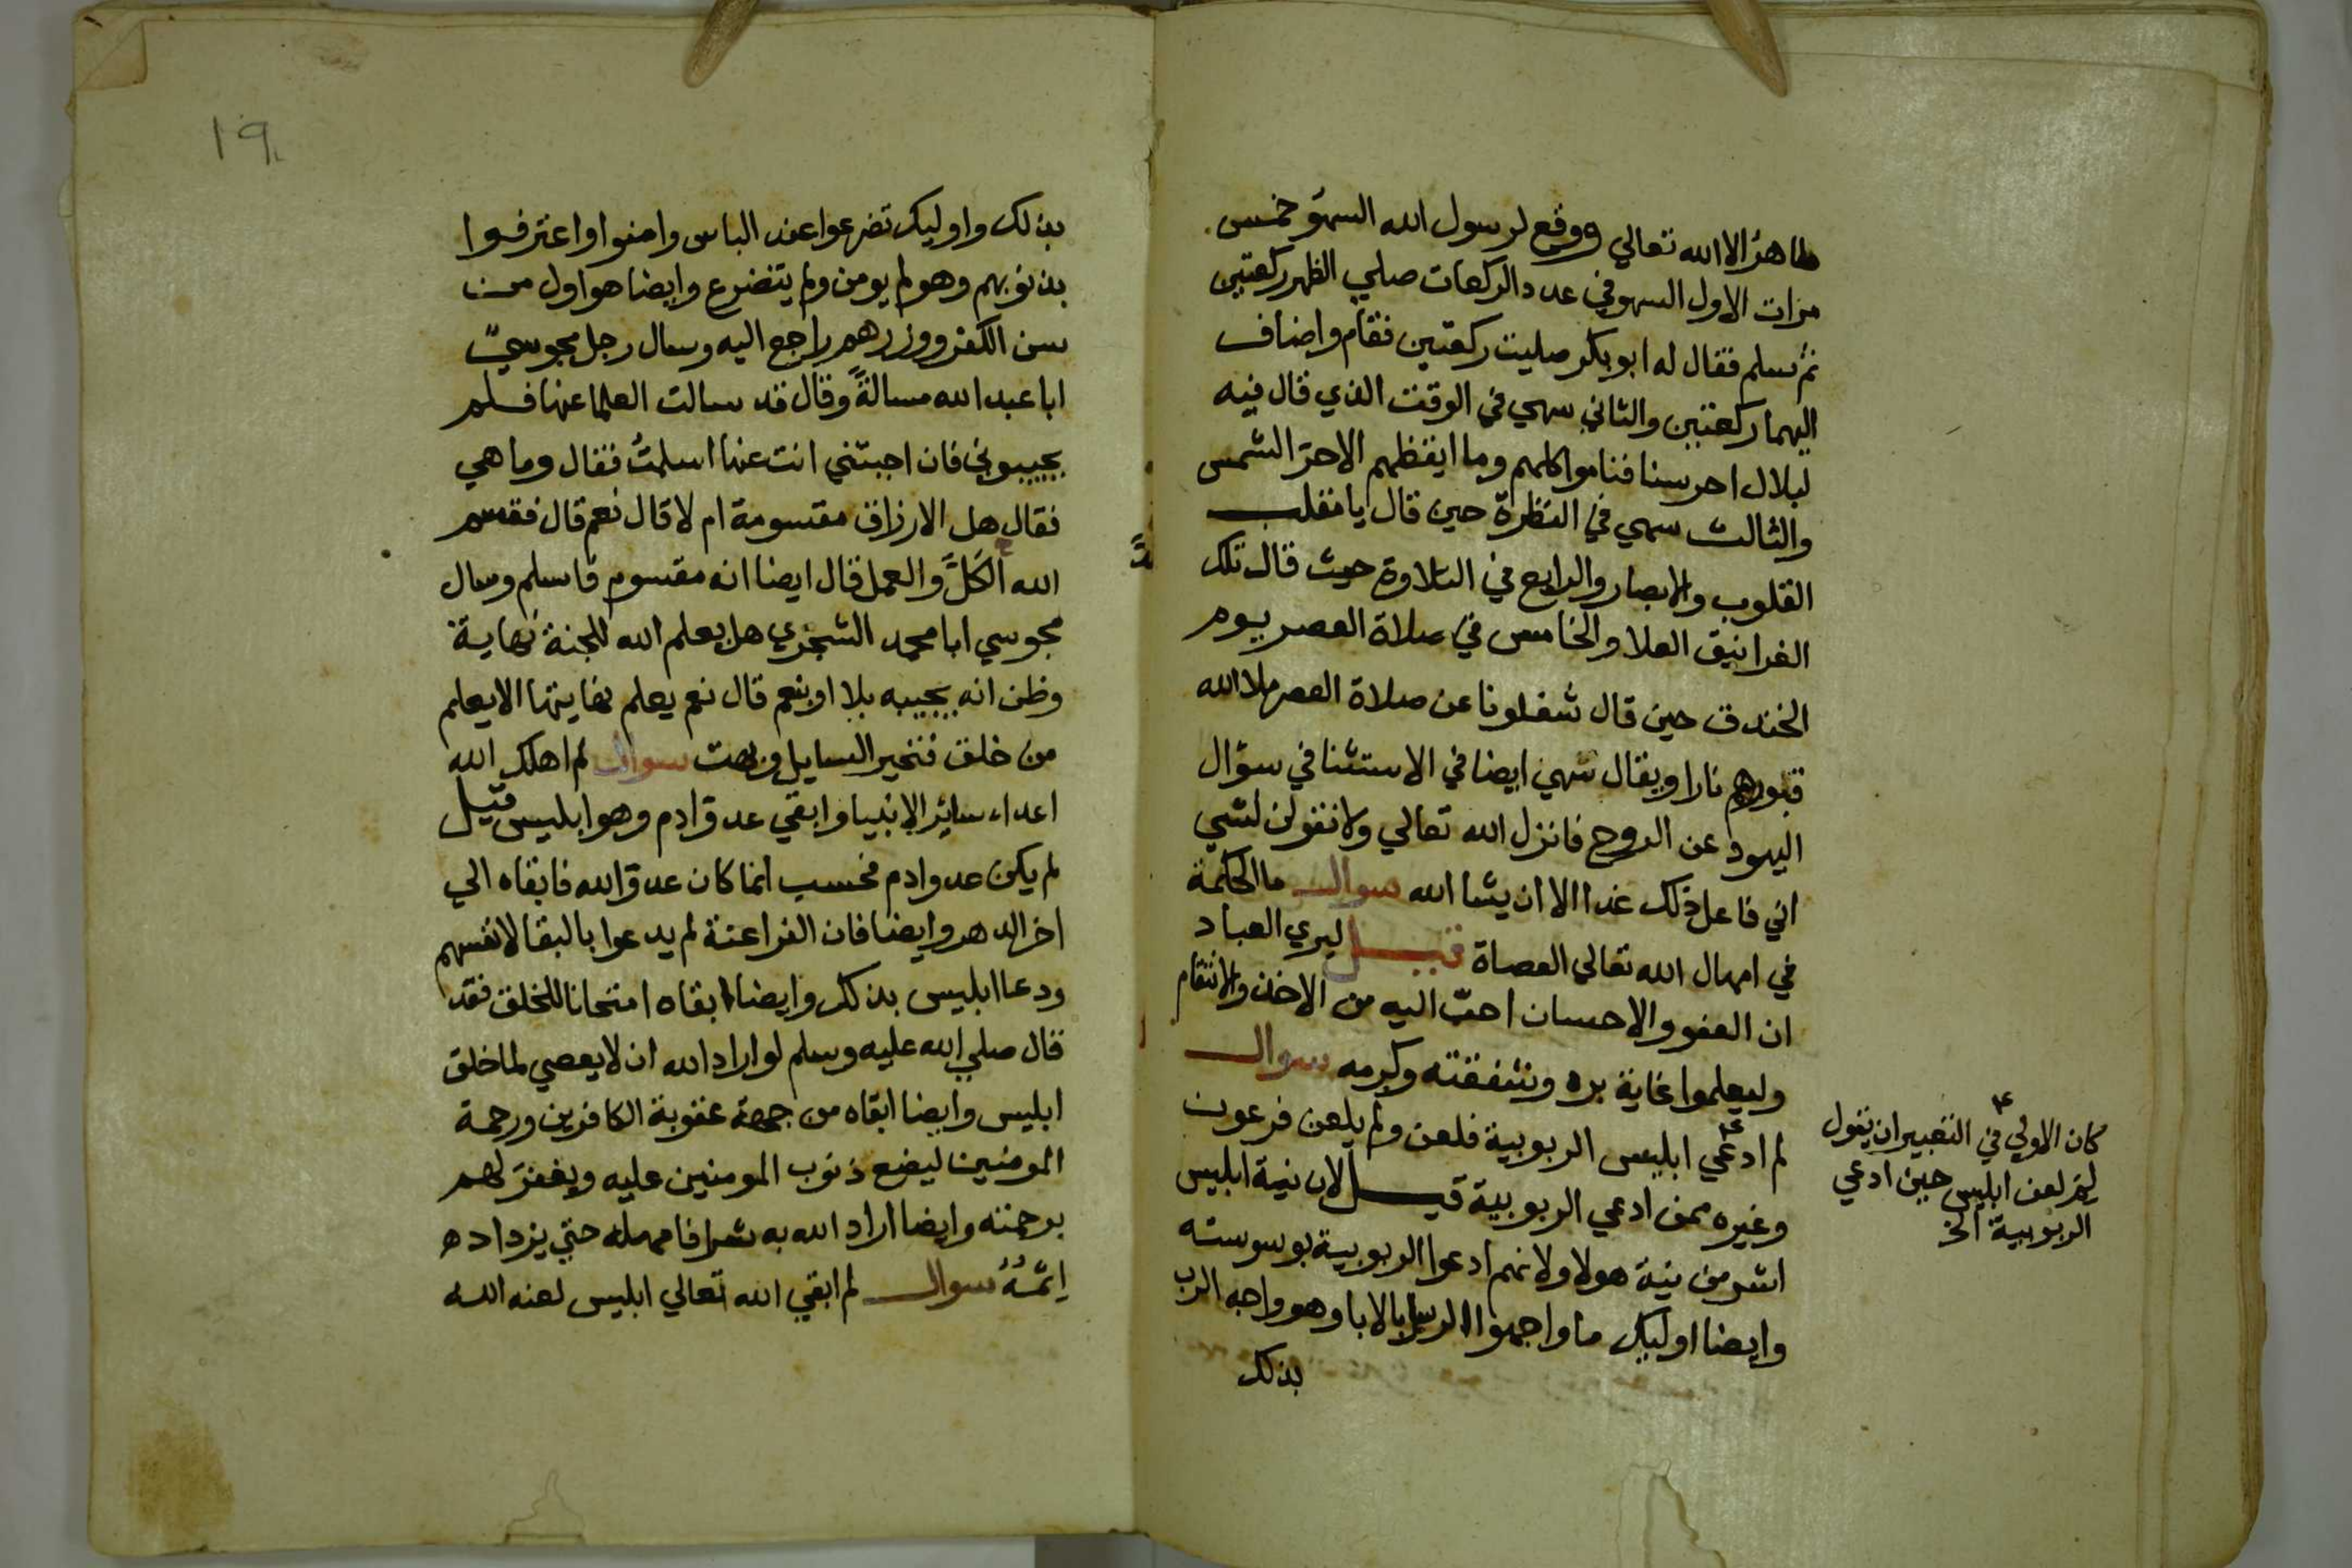 طاهرُ الا الله تعالي ووقع لرسول الله السهو خمس
مرات الاول السهو في عدد الركعات صلي الظهر ركعتين
ثم سلم فقال له ابو بكر صليت ركعتين فقام واضاف
اليهما ركعتين والثاني سهي في الوقت الذي قال فيه
لبلال احرسنا فناموا كلهم وما ايقظهم الا حرّ الشمس
والثالث سهي في النظرة حين قال يا مقلب
القلوب والابصار والرابع في التلاوة حيث قال تلك
الغرانيق العلا والخامس في صلاة العصر يوم
الخندق حين قال شغلونا عن صلاة العصر ملا الله
قبورهم نارا ويقال سهي ايضا في الاستثنا في سؤال
اليهود عن الروح فانزل الله تعالي ولا تقولن لشي
اني فاعل ذلك غدا الا ان يشا الله سوال ما الحكمة
في امهال الله تعالي العصاة قيل ليري العباد
ان العفو والاحسان احبّ اليه من الاخذ والانتقام
وليعلموا غاية بره وشفقته وكرمه سوال
لم ادعي ابليس الربوبية فلعن ولم يلعن فرعون
وغيره ممن ادعي الربوبية قيل لان نية ابليس
اشر من نية هولا ولانهم ادعوا الربوبية بوسوسته
وايضا اوليك ما واجهوا الرسل بالابا وهو واجه الرب
بذلك
كان الاولي في التعبير ان يقول
لم لعن ابليس حين ادعي
الربوبية الخ
١٩
بذلك واوليك تضرعوا عند الباس وامنوا واعترفوا
بذنوبهم وهو لم يومن ولم يتضرع وايضا هو اول من
سن الكفر ووزرهم راجع اليه وسال رجل مجوسيّ
ابا عبد الله مسالةً وقال قد سالت العلما عنها فلم
يجيبوني فان اجبتني انت عنها اسلمتُ فقال وما هي
فقال هل الارزاق مقسومة ام لا قال نعم قال فقسم
الله الكلَّ والعمل قال ايضا انه مقسوم فاسلم وسال
مجوسي ابا محمد الشجري هل يعلم الله للجنة نهاية
وظن انه يجيبه بلا او بنعم قال نعم يعلم نهايتها الا يعلم
من خلق فتحير السايل وبهت سوال لم اهلك الله
اعداء ساير الانبيا وابقي عدو ادم وهو ابليس قيل
لم يكن عدو ادم فحسب انما كان عدوّ الله فابقاه الي
اخر الدهر وايضا فان الفراعنة لم يدعوا بالبقا لانفسهم
ودعا ابليس بذلك وايضا ابقاه امتحانا للخلق فقد
قال صلي الله عليه وسلم لو اراد الله ان لا يعصي لما خلق
ابليس وايضا ابقاه من جهة عقوبة الكافرين ورحمة
المومنين ليضع ذنوب المومنين عليه ويغفرَ لهم
برحمته وايضا اراد الله به شرا فامهله حتي يزداد ه
اِثمُهُ سوال لم ابقي الله تعالي ابليس لعنه الله